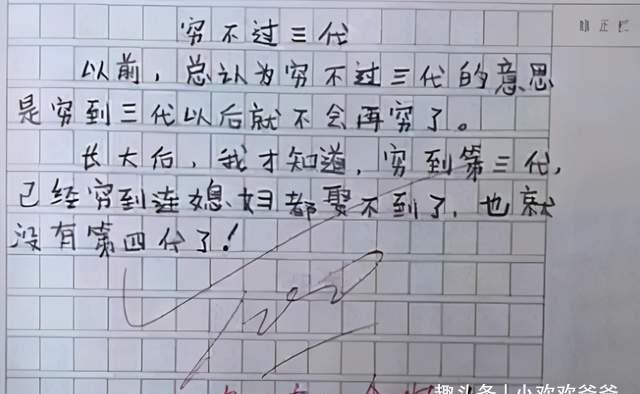 穷不过三代
以前，总认为穷不过三代的意思
是穷到三代以后就不会再穷了。
长大后，我才知道，穷到第三代，
已经穷到连媳妇都娶不到了，也就
没有第四代了！
趣头条 | 小欢欢爷爷